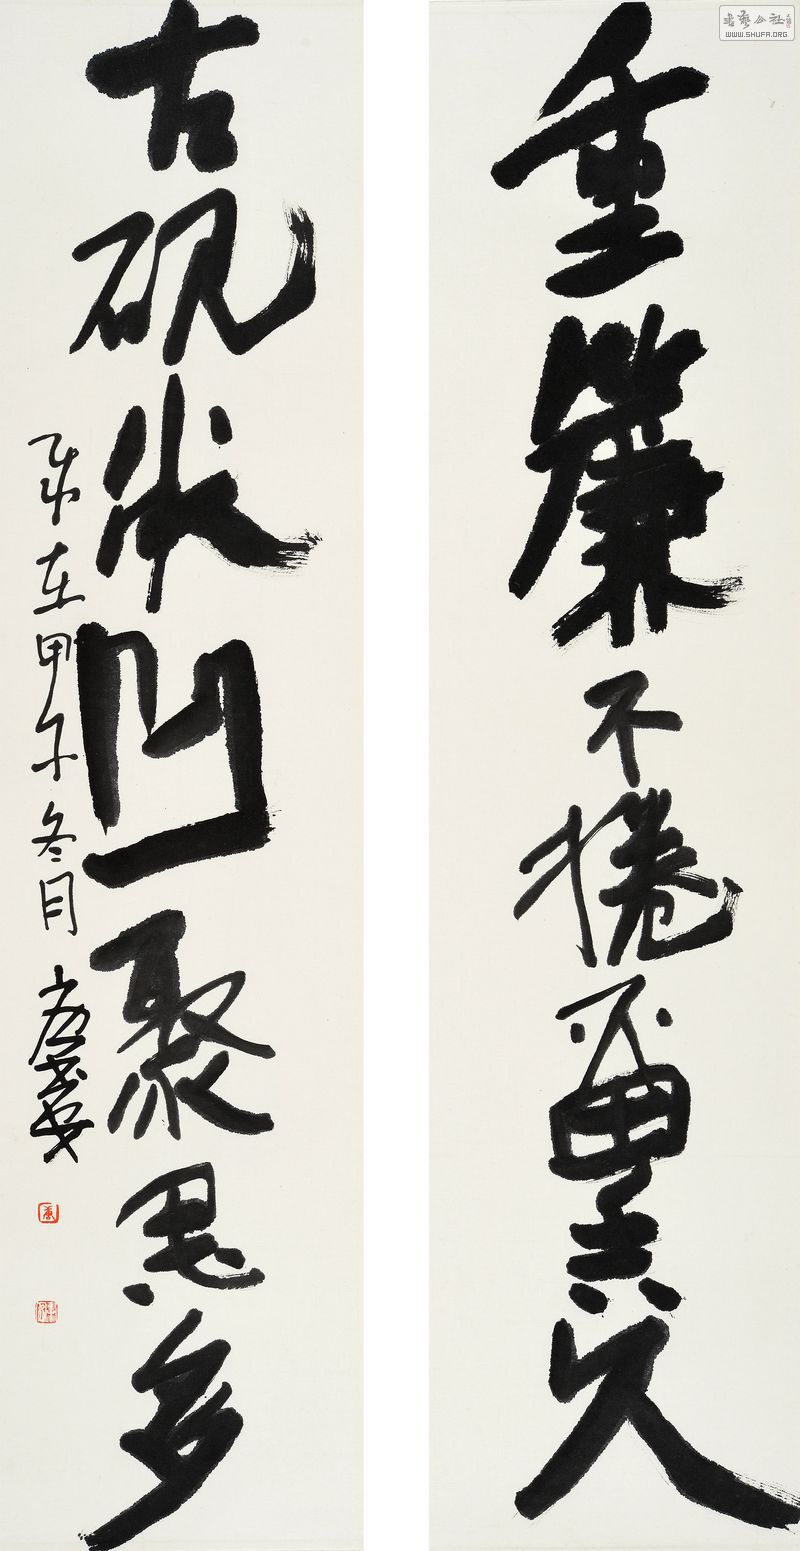 書藝公社
WWW.SHUFA.ORG
重簾不捲畱香久
古硯凹聚思多
歲在甲子冬月